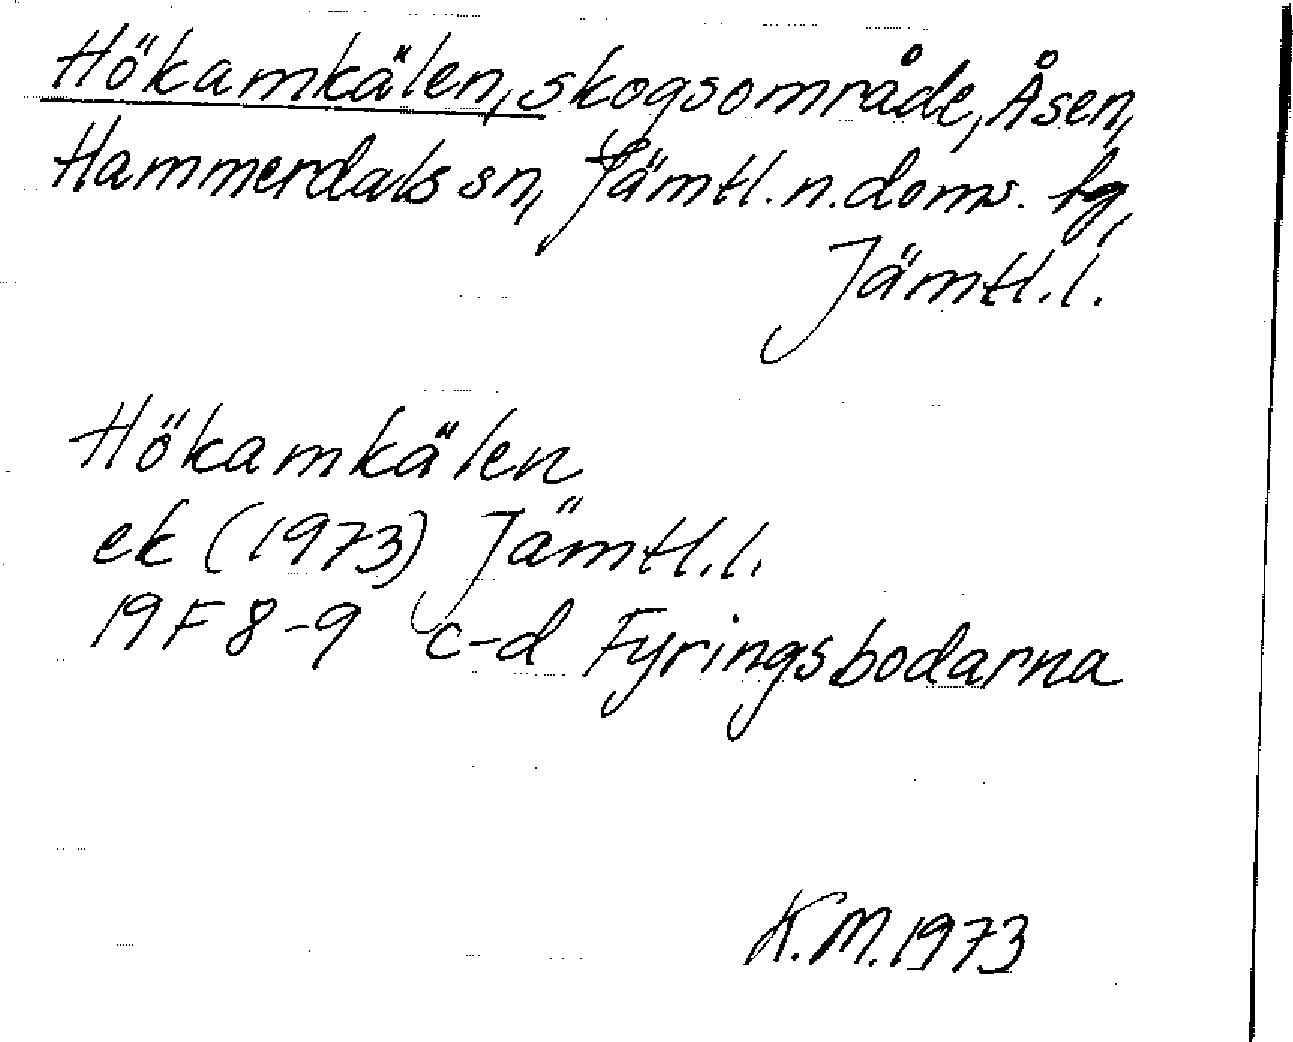 Hökamkälen, skogsområde, Åsen,
Hammerdals sn, Jämtl. n. doms. tg,
Jämtl. l.
Hökamkälen
ek (1973) Jämtl. l.
19F 8-9 c-d Fyringsbodarna
K. M. 1973